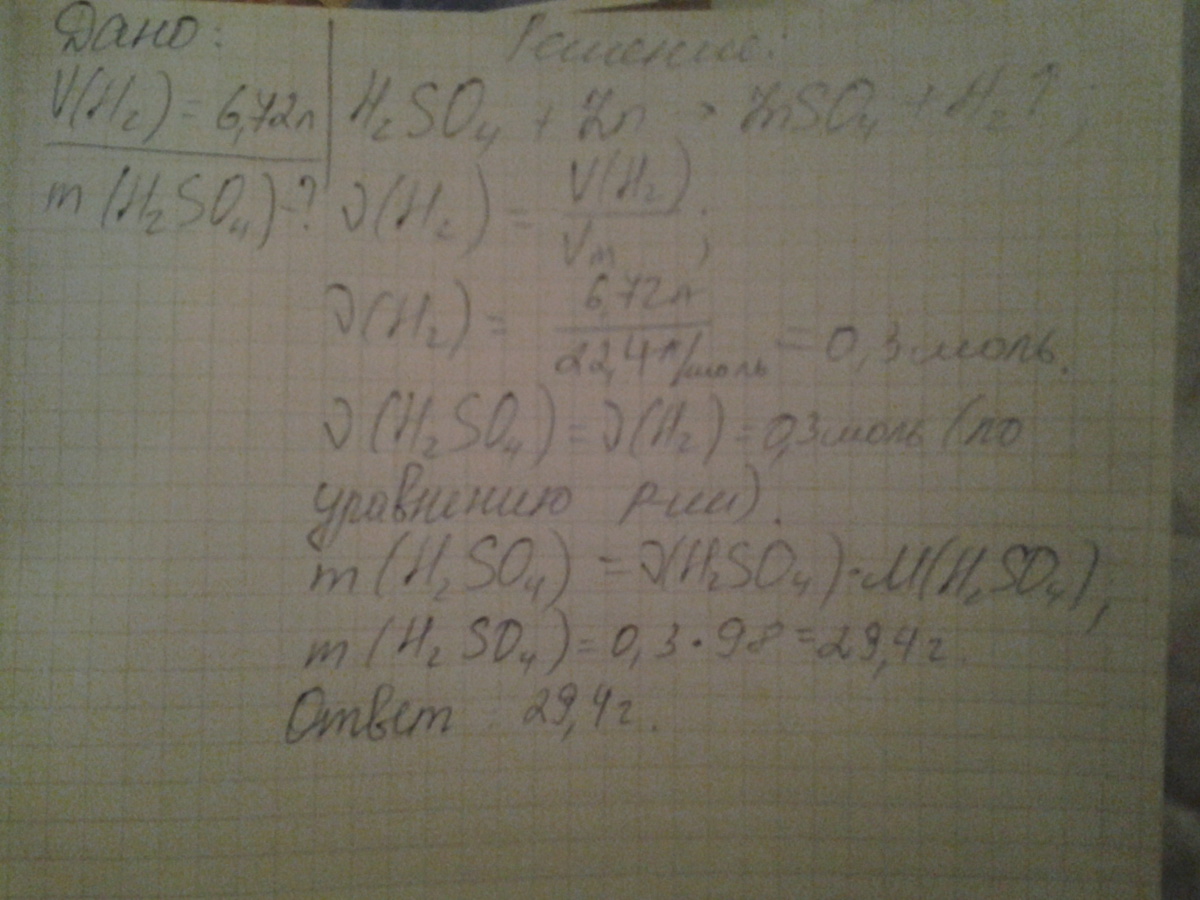 Дано:
V(H₂) = 6,72л
m (H₂SO₄)-?
Решение:
H₂SO₄ + Zn → ZnSO₄ + H₂↑;
ν(H₂) = V(H₂)/Vm;
ν(H₂) = 6,72л/22,4л/моль = 0,3 моль.
ν(H₂SO₄) = ν(H₂) = 0,3 моль (по
уравнению р-ции).
m (H₂SO₄) = ν(H₂SO₄)·M(H₂SO₄),
m (H₂SO₄) = 0,3·98 = 29,4г.
Ответ: 29,4г.